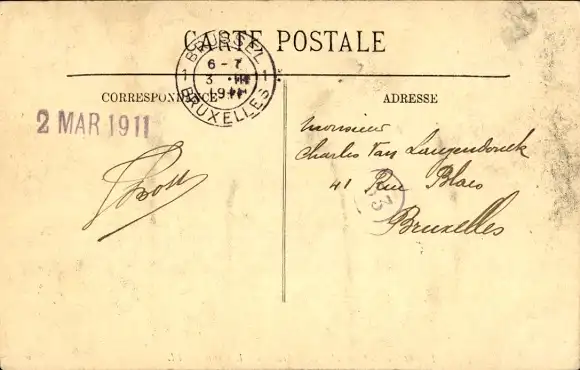 CARTE POSTALE
BRUSSEL
6 - 7
3 III
1911
1 1
BRUXELLES
CORRESPONDENCE
ADRESSE
2 MAR 1911
Monsieur
Charles Van Langendonck
41 Rue Blaes
Bruxelles